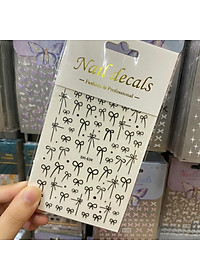 Nail decals
— Fashion & Professional —